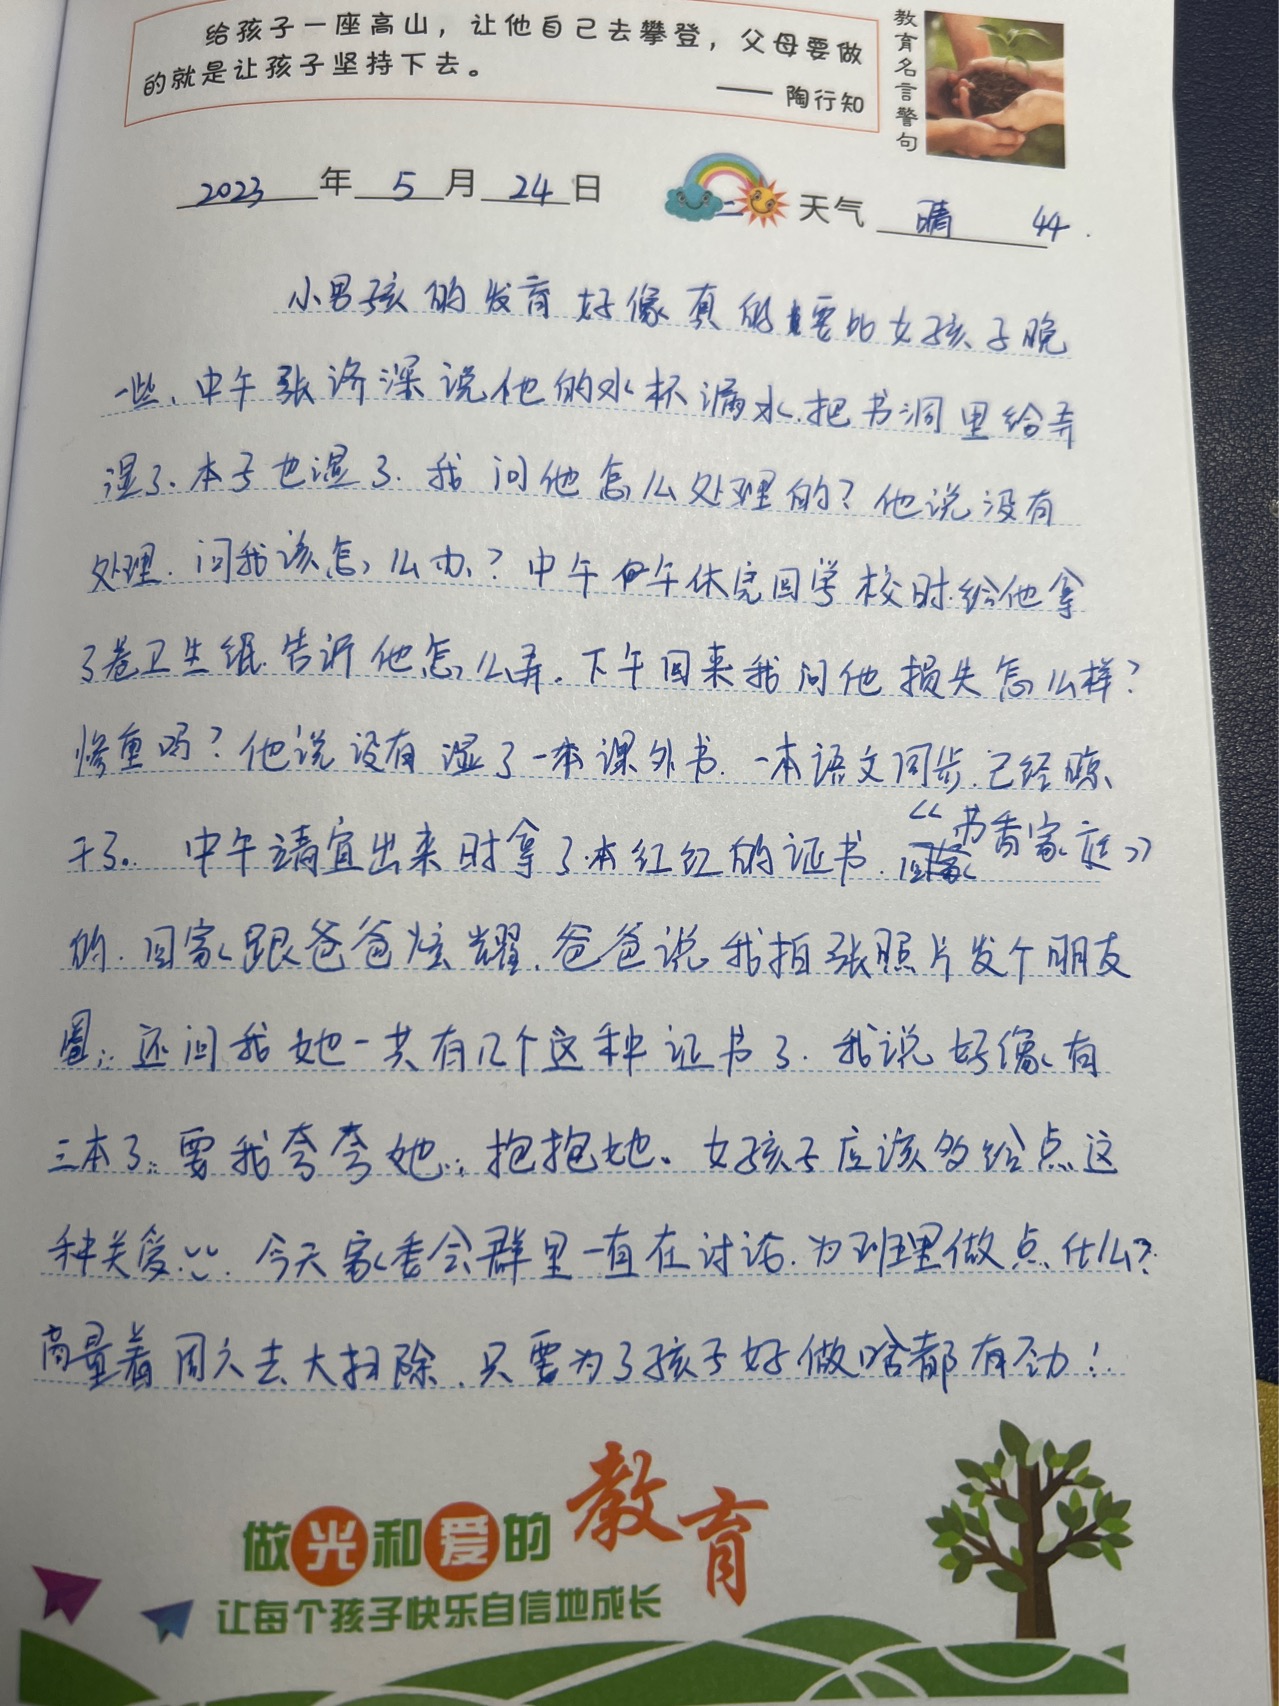 给孩子一座高山，让他自己去攀登，父母要做
的就是让孩子坚持下去。
—— 陶行知
教育名言警句
2023年5月24日 天气 晴 44.
小男孩的发育好像真的要比女孩子晚
一些、中午张济深说他的水杯漏水.把书洞里给弄
湿了、本子也湿了.我问他怎么处理的？他说没有
处理.问我该怎么办？中午午休完回学校时.给他拿
了卷卫生纸.告诉他怎么弄.下午回来我问他损失怎么样？
惨重吗？他说没有湿了一本课外书.一本语文同步.已经晾
干了。中午靖宜出来时拿了本红红的证书.《书香家庭》
的.回家跟爸爸炫耀.爸爸说我拍张照片发个朋友
圈；还问我她一共有几个这种证书了.我说好像有
三本了；要我夸夸她；抱抱她。女孩子应该多给点这
种关爱.今天家委会群里一直在讨论.为班里做点什么？
商量着周六去大扫除.只要为了孩子好做啥都有劲！
做光和爱的教育
让每个孩子快乐自信地成长